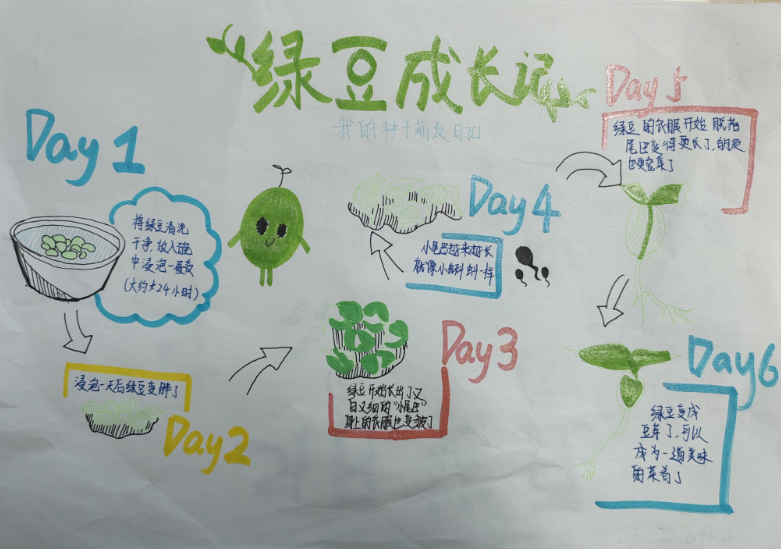 绿豆成长记
我的种子萌发日记
Day 1
将绿豆清洗
干净,放入碗
中浸泡一整夜
(大约24小时)
浸泡一天后绿豆变胖了
Day2
Day3
绿豆开始长出了又
白又细的“小尾巴”
身上的衣服也变皱了
Day 4
小尾巴越来越长
就像小蝌蚪一样
Day 5
绿豆的衣服开始脱落
尾巴变得更长了,
也更密集了
Day6
绿豆变成
豆芽了,可以
成为一道美味
的菜肴了